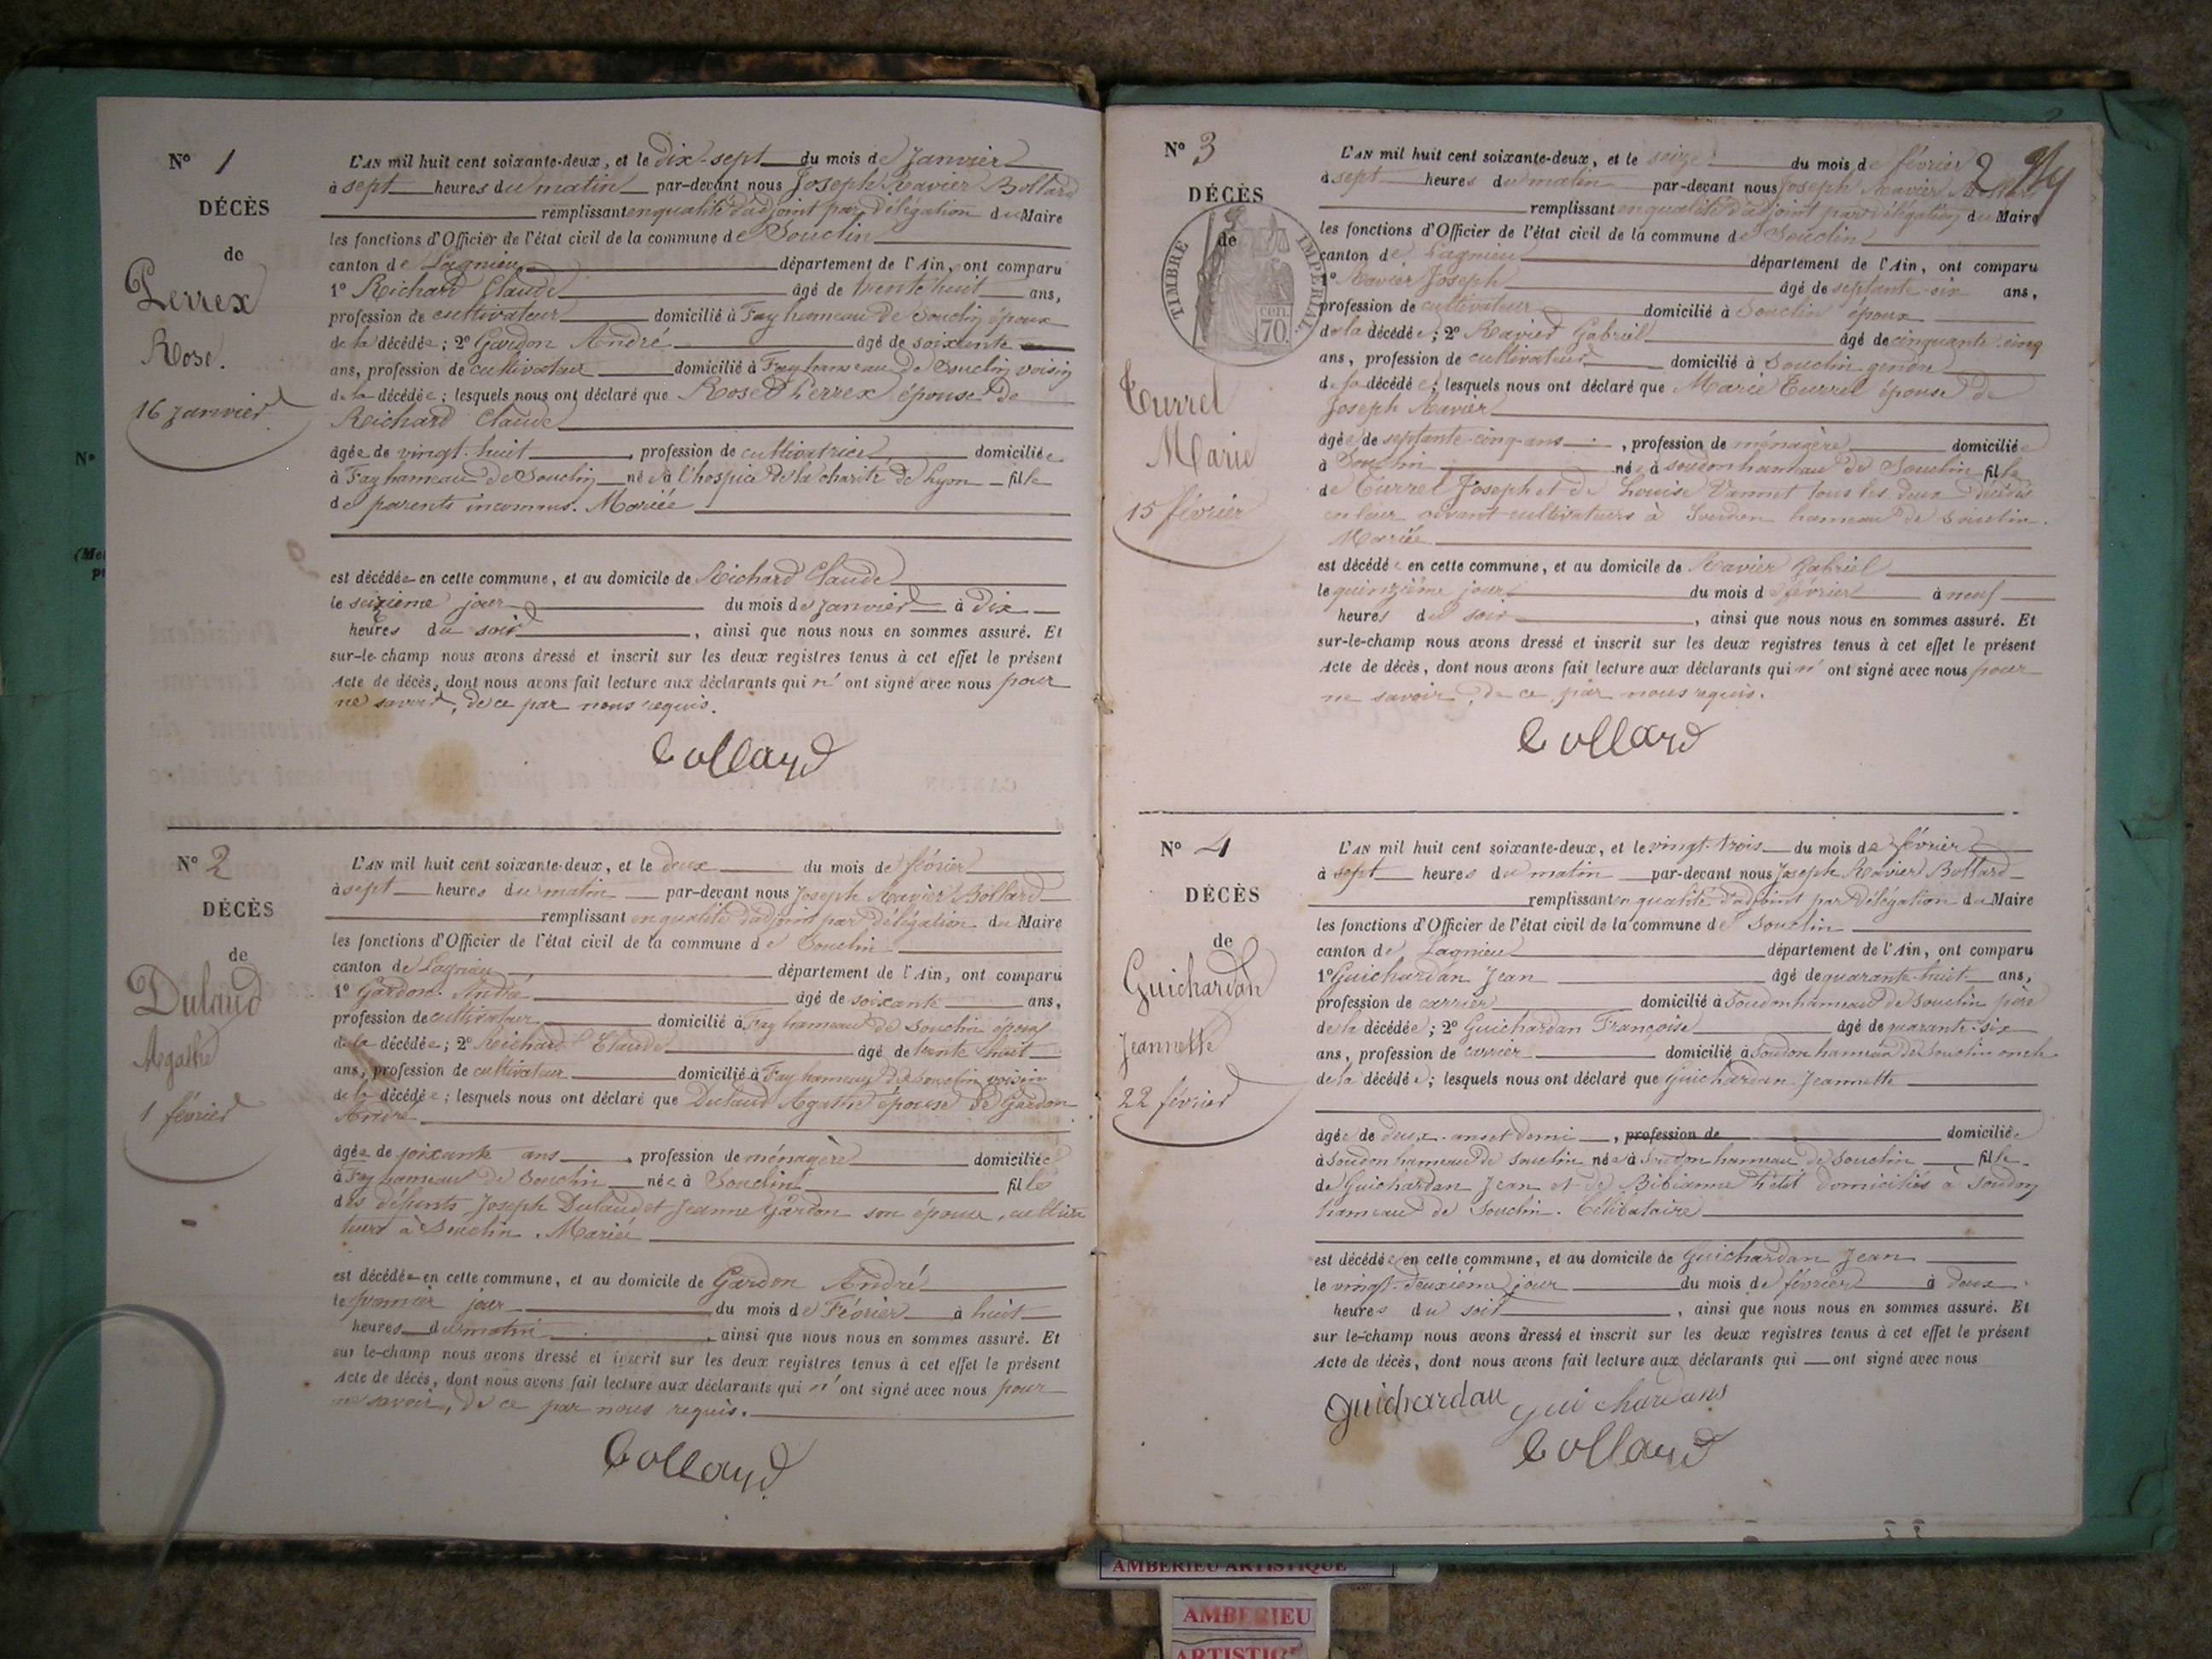 N° 1
DÉCÈS
de
Perrex
Rose.
16 Janvier
L'AN mil huit cent soixante-deux, et le dix-sept du mois de Janvier
à sept heures du matin par-devant nous Joseph Ravier Bollard
remplissant en qualité d'adjoint par délégation du Maire
les fonctions d'Officier de l'état civil de la commune de Souclin
canton de Lagnieu département de l'Ain, ont comparu
1° Richard Claude âgé de trente huit ans,
profession de cultivateur domicilié à Fay hameau de Souclin époux
de la décédée; 2° Gardon André âgé de soixante
ans, profession de cultivateur domicilié à Fay hameau de Souclin voisin
de la décédée; lesquels nous ont déclaré que Rose Perrex épouse de
Richard Claude
âgée de vingt-huit, profession de cultivatrice domiciliée
à Fay hameau de Souclin née à l'hospice de la charité de Lyon fille
de parents inconnus. Mariée
est décédée en cette commune, et au domicile de Richard Claude
le seizième jour du mois de Janvier à dix
heures du soir, ainsi que nous nous en sommes assuré. Et
sur-le-champ nous avons dressé et inscrit sur les deux registres tenus à cet effet le présent
Acte de décès, dont nous avons fait lecture aux déclarants qui n'ont signé avec nous pour
ne savoir, de ce par nous requis.
Bollard
N° 2
DÉCÈS
de
Dulaud
Agathe
1 février
L'AN mil huit cent soixante-deux, et le deux du mois de février
à sept heures du matin par-devant nous Joseph Ravier Bollard
remplissant en qualité d'adjoint par délégation du Maire
les fonctions d'Officier de l'état civil de la commune de Souclin
canton de Lagnieu département de l'Ain, ont comparu
1° Gardon André âgé de soixante ans,
profession de cultivateur domicilié à Fay hameau de Souclin époux
de la décédée; 2° Richard Claude âgé de trente huit
ans, profession de cultivateur domicilié à Fay hameau de Souclin voisin
de la décédée; lesquels nous ont déclaré que Dulaud Agathe épouse de Gardon
André
âgée de soixante ans, profession de ménagère domiciliée
à Fay hameau de Souclin née à Souclin fille
des défunts Joseph Dulaud et Jeanne Gardon son épouse, cultiva
teurs à Souclin. Mariée
est décédée en cette commune, et au domicile de Gardon André
le premier jour du mois de Février à huit
heures du matin, ainsi que nous nous en sommes assuré. Et
sur le-champ nous avons dressé et inscrit sur les deux registres tenus à cet effet le présent
Acte de décès, dont nous avons fait lecture aux déclarants qui n'ont signé avec nous pour
ne savoir, de ce par nous requis.
Bollard
2
N° 3
DÉCÈS
de
TIMBRE IMPÉRIAL
CEN. 70.
Turrel
Marie
15 février
L'AN mil huit cent soixante-deux, et le seize du mois de février
à sept heures du matin par-devant nous Joseph Ravier Bollard
remplissant en qualité d'adjoint par délégation du Maire
les fonctions d'Officier de l'état civil de la commune de Souclin
canton de Lagnieu département de l'Ain, ont comparu
1° Ravier Joseph âgé de septante-six ans,
profession de cultivateur domicilié à Souclin époux
de la décédée; 2° Ravier Gabriel âgé de cinquante-cinq
ans, profession de cultivateur domicilié à Souclin gendre
de la décédée; lesquels nous ont déclaré que Marie Turrel épouse de
Joseph Ravier
âgée de septante-cinq ans, profession de ménagère domiciliée
à Souclin née à Soudon hameau de Souclin fille
de Turrel Joseph et de Louise Vannet tous les deux décédés
en leur vivant cultivateurs à Soudon hameau de Souclin.
Mariée
est décédée en cette commune, et au domicile de Ravier Gabriel
le quinzième jour du mois de février à neuf
heures du soir, ainsi que nous nous en sommes assuré. Et
sur-le-champ nous avons dressé et inscrit sur les deux registres tenus à cet effet le présent
Acte de décès, dont nous avons fait lecture aux déclarants qui n'ont signé avec nous pour
ne savoir, de ce par nous requis.
Bollard
N° 4
DÉCÈS
de
Guichardan
Jeannette
22 février
L'AN mil huit cent soixante-deux, et le vingt-trois du mois de février
à sept heures du matin par-devant nous Joseph Ravier Bollard
remplissant en qualité d'adjoint par délégation du Maire
les fonctions d'Officier de l'état civil de la commune de Souclin
canton de Lagnieu département de l'Ain, ont comparu
1° Guichardan Jean âgé de quarante-huit ans,
profession de carrier domicilié à Soudon hameau de Souclin père
de la décédée; 2° Guichardan Françoise âgé de quarante-six
ans, profession de carrier domicilié à Soudon hameau de Souclin oncle
de la décédée; lesquels nous ont déclaré que Guichardan Jeannette
âgée de deux ans et demi, profession de domiciliée
à Soudon hameau de Souclin née à Soudon hameau de Souclin fille
de Guichardan Jean et de Bibianne Petit domiciliés à Soudon
hameau de Souclin. Célibataire
est décédée en cette commune, et au domicile de Guichardan Jean
le vingt-deuxième jour du mois de février à deux
heures du soir, ainsi que nous nous en sommes assuré. Et
sur le-champ nous avons dressé et inscrit sur les deux registres tenus à cet effet le présent
Acte de décès, dont nous avons fait lecture aux déclarants qui ont signé avec nous
Guichardan Guichardans
Bollard
AMBERIEU ARTISTIQUE
AMBERIEU
ARTISTIQUE